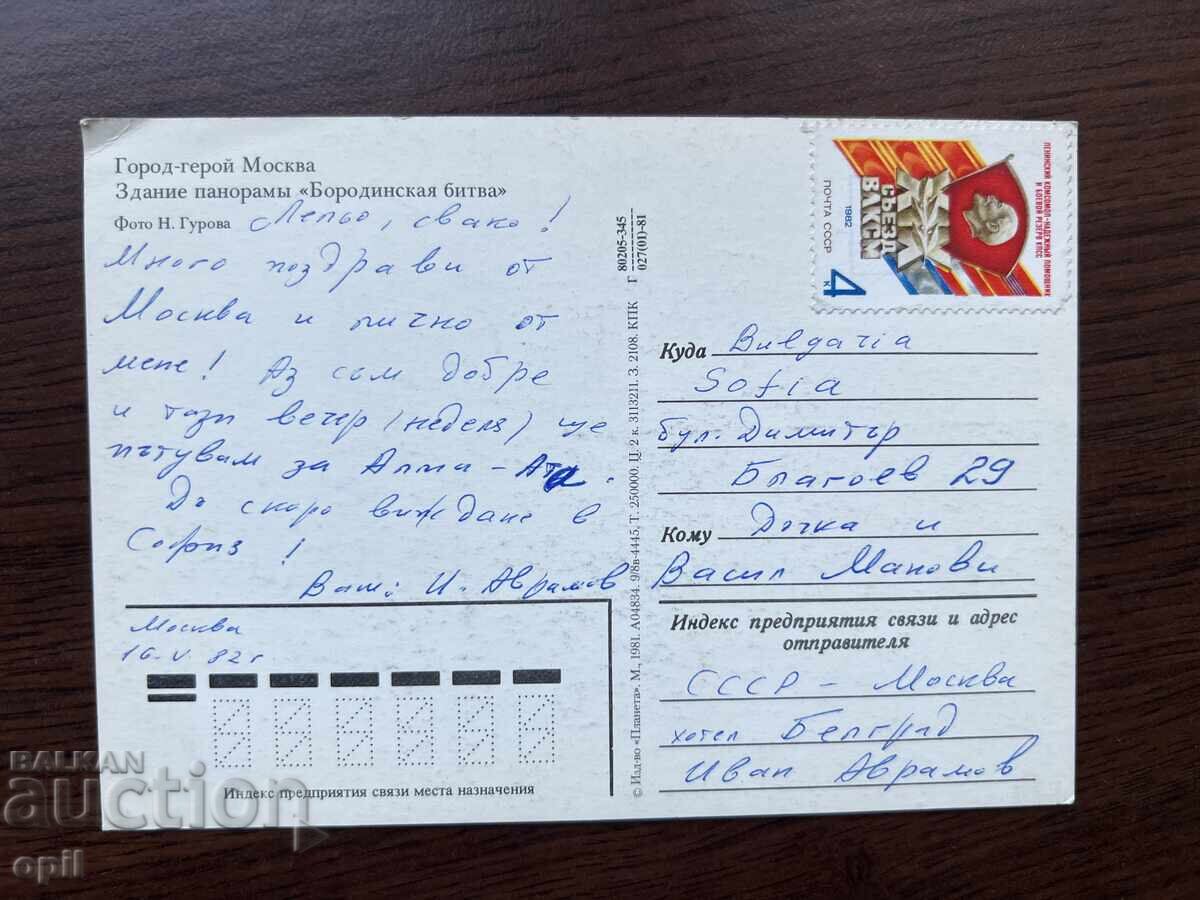 Город-герой Москва
Здание панорамы «Бородинская битва»
Фото Н. Гурова
Лельо, свако!
Много поздрави от
Москва и лично от
мене! Аз съм добре
и тази вечер (неделя) ще
пътувам за Алма-Ата.
До скоро виждане в
София!
Ваш: И. Аврамов
Москва
16.V.82г
Индекс предприятия связи места назначения
© Изд-во «Планета». М., 1981. А04834. 9/8в-4445. Т. 250000. Ц. 2 к. 3113211. З. 2108. КПК
Г 80205-345
027(01)-81
ЛЕНИНСКИЙ КОМСОМОЛ-НАДЕЖНЫЙ ПОМОЩНИК
И БОЕВОЙ РЕЗЕРВ КПСС
XIX
СЪЕЗД
ВЛКСМ
1982
ПОЧТА СССР
4 к
Куда Bulgaria
Sofia
бул. Димитър
Благоев 29
Кому Дочка и
Васил Манови
Индекс предприятия связи и адрес
отправителя
СССР - Москва
хотел Белград
Иван Аврамов
BALKAN
auction
opil